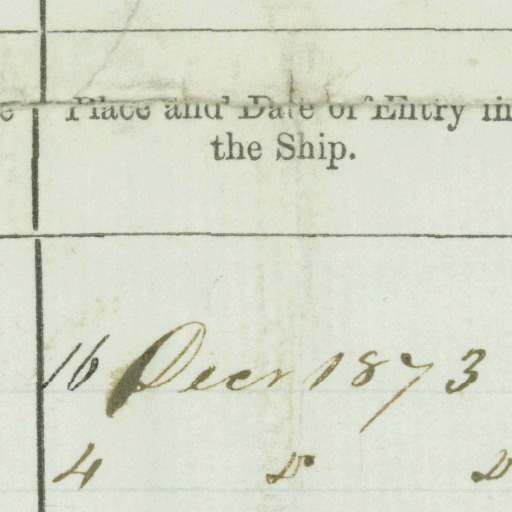 e Place and Date of Entry in
the Ship.
16 Decr 1873
4 Do Do